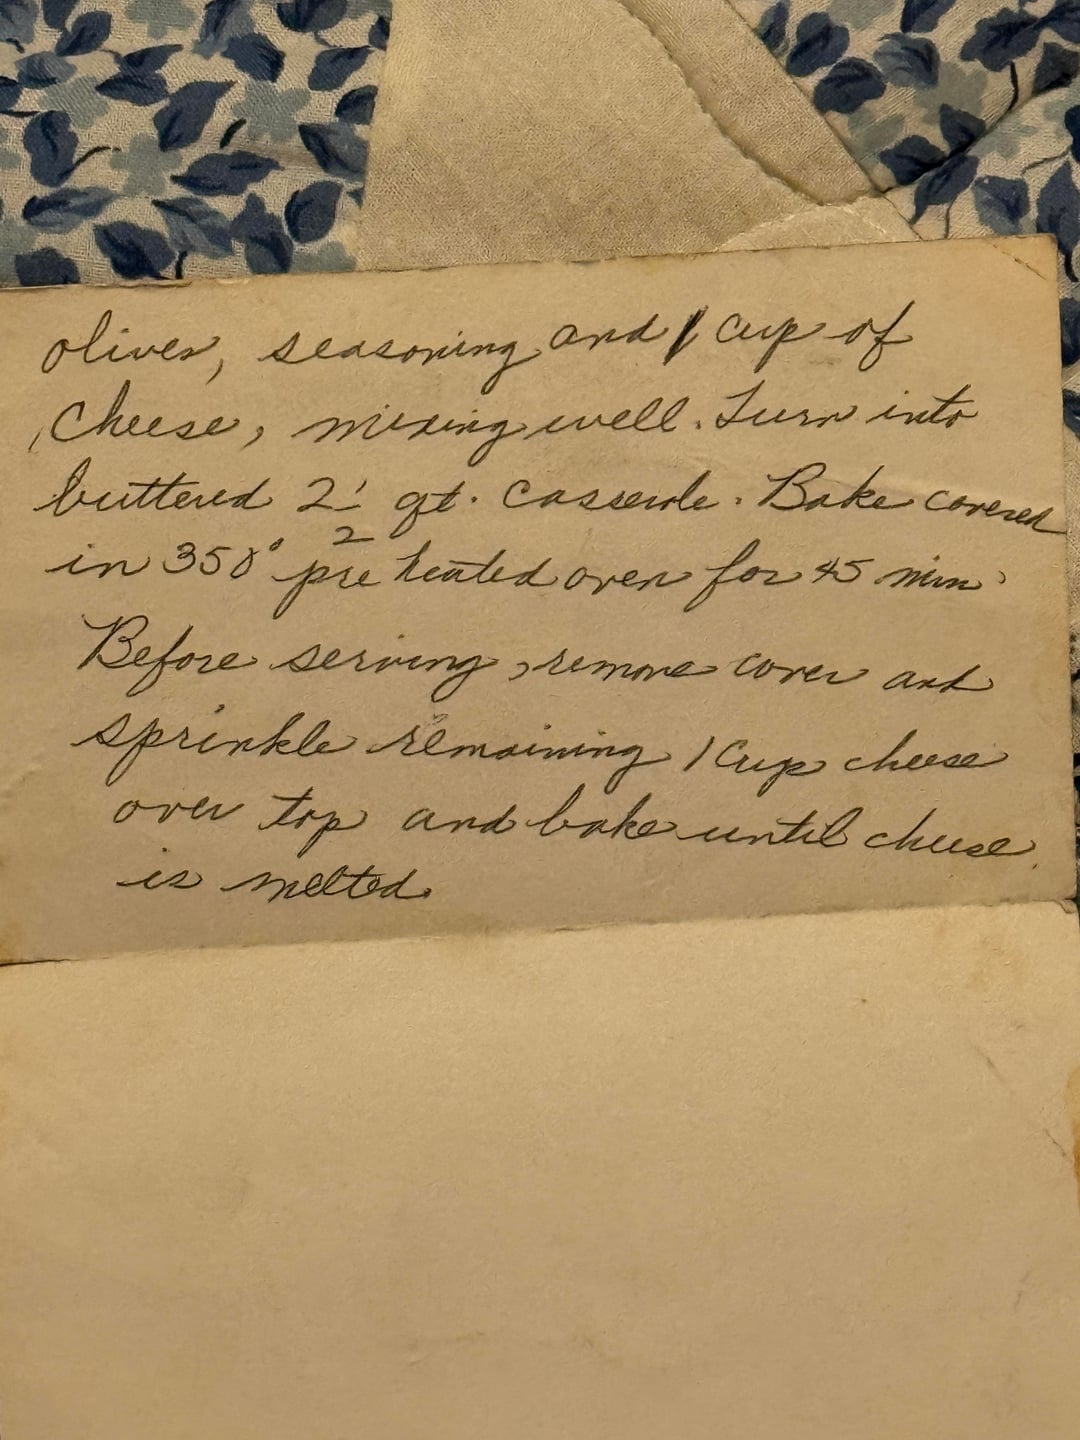 olives, seasoning and 1 cup of
cheese, mixing well. Turn into
buttered 2 1/2 qt. casserole. Bake covered
in 350° pre heated oven for 45 min
Before serving, remove cover and
sprinkle remaining 1 cup cheese
over top and bake until cheese
is melted.